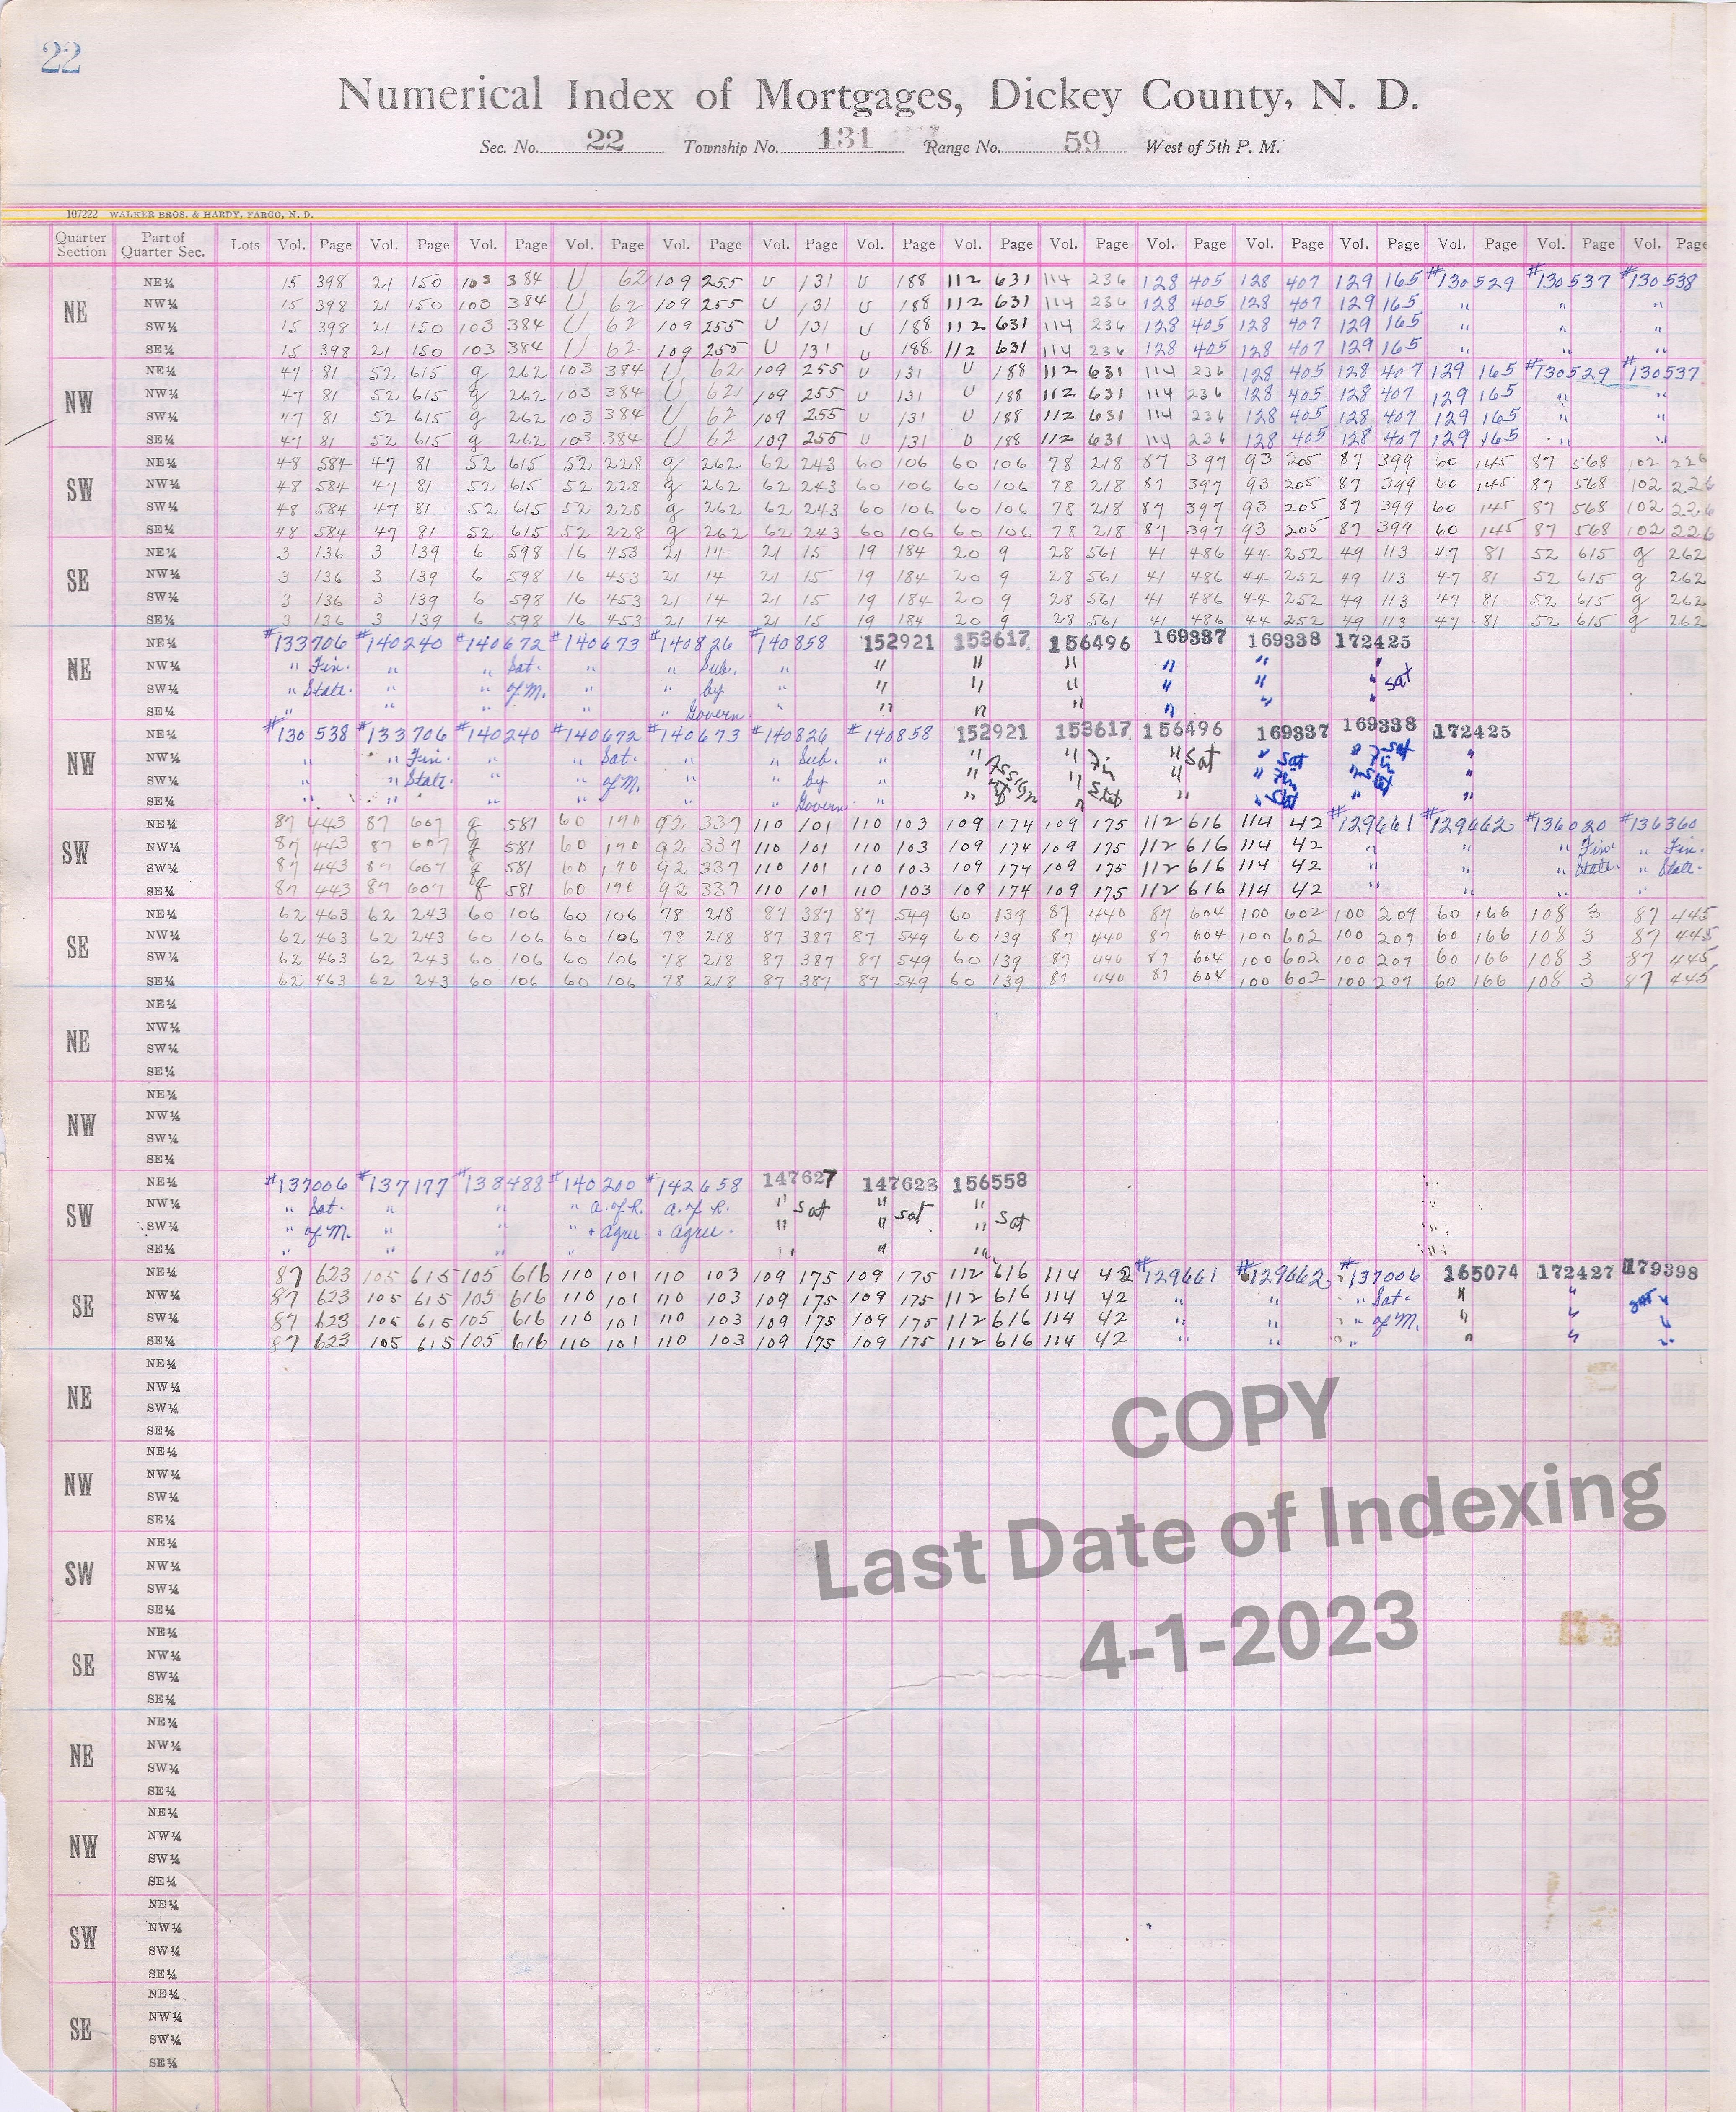 22
Numerical Index of Mortgages, Dickey County, N. D.
Sec. No. 22 Township No. 131 Range No. 59 West of 5th P. M.
107222 WALKER BROS. & HARDY, FARGO, N. D.
Quarter Section Part of Quarter Sec. Lots Vol. Page Vol. Page Vol. Page Vol. Page Vol. Page Vol. Page Vol. Page Vol. Page Vol. Page Vol. Page Vol. Page Vol. Page Vol. Page Vol. Page Vol. Page
NE
NE¼ 15 398 21 150 103 384 U 62 109 255 U 131 U 188 112 631 114 236 128 405 128 407 129 165 #130529 #130537 #130538
NW¼ 15 398 21 150 103 384 U 62 109 255 U 131 U 188 112 631 114 236 128 405 128 407 129 165 " " "
SW¼ 15 398 21 150 103 384 U 62 109 255 U 131 U 188 112 631 114 236 128 405 128 407 129 165 " " "
SE¼ 15 398 21 150 103 384 U 62 109 255 U 131 U 188 112 631 114 236 128 405 128 407 129 165 " " "
NW
NE¼ 47 81 52 615 g 262 103 384 U 62 109 255 U 131 U 188 112 631 114 236 128 405 128 407 129 165 #130529 #130537
NW¼ 47 81 52 615 g 262 103 384 U 62 109 255 U 131 U 188 112 631 114 236 128 405 128 407 129 165 " "
SW¼ 47 81 52 615 g 262 103 384 U 62 109 255 U 131 U 188 112 631 114 236 128 405 128 407 129 165 " "
SE¼ 47 81 52 615 g 262 103 384 U 62 109 255 U 131 U 188 112 631 114 236 128 405 128 407 129 165 " "
SW
NE¼ 48 584 47 81 52 615 52 228 g 262 62 243 60 106 60 106 78 218 87 397 93 205 87 399 60 145 87 568 102 226
NW¼ 48 584 47 81 52 615 52 228 g 262 62 243 60 106 60 106 78 218 87 397 93 205 87 399 60 145 87 568 102 226
SW¼ 48 584 47 81 52 615 52 228 g 262 62 243 60 106 60 106 78 218 87 397 93 205 87 399 60 145 87 568 102 226
SE¼ 48 584 47 81 52 615 52 228 g 262 62 243 60 106 60 106 78 218 87 397 93 205 87 399 60 145 87 568 102 226
SE
NE¼ 3 136 3 139 6 598 16 453 21 14 21 15 19 184 20 9 28 561 41 486 44 252 49 113 47 81 52 615 g 262
NW¼ 3 136 3 139 6 598 16 453 21 14 21 15 19 184 20 9 28 561 41 486 44 252 49 113 47 81 52 615 g 262
SW¼ 3 136 3 139 6 598 16 453 21 14 21 15 19 184 20 9 28 561 41 486 44 252 49 113 47 81 52 615 g 262
SE¼ 3 136 3 139 6 598 16 453 21 14 21 15 19 184 20 9 28 561 41 486 44 252 49 113 47 81 52 615 g 262
NE
NE¼ #133706 #140240 #140672 #140673 #140826 #140858 152921 153617 156496 169337 169338 172425
NW¼ " Fin. " " Sat. " " Sub. " " " " " " "
SW¼ " State. " " of M. " " by " " " " " " " sat
SE¼ " " " " " Govern. " " " " " " "
NW
NE¼ #130538 #133706 #140240 #140672 #140673 #140826 #140858 152921 153617 156496 169337 169338 172425
NW¼ " " Fin. " " Sat. " " Sub. " " " Fin " Sat " Sat " Sat "
SW¼ " " State. " " of M. " " by " " Assign " " " Fin " Fin "
SE¼ " " " " " " Govern. " " of " Stat " " "
SW
NE¼ 87 443 87 607 g 581 60 170 92 337 110 101 110 103 109 174 109 175 112 616 114 42 #129661 #129662 #136020 #136360
NW¼ 87 443 87 607 g 581 60 170 92 337 110 101 110 103 109 174 109 175 112 616 114 42 " " " Fin. " Fin.
SW¼ 87 443 87 607 g 581 60 170 92 337 110 101 110 103 109 174 109 175 112 616 114 42 " " " State. " State.
SE¼ 87 443 87 607 g 581 60 170 92 337 110 101 110 103 109 174 109 175 112 616 114 42 " " " "
SE
NE¼ 62 463 62 243 60 106 60 106 78 218 87 387 87 549 60 139 87 440 87 604 100 602 100 207 60 166 108 3 87 445
NW¼ 62 463 62 243 60 106 60 106 78 218 87 387 87 549 60 139 87 440 87 604 100 602 100 207 60 166 108 3 87 445
SW¼ 62 463 62 243 60 106 60 106 78 218 87 387 87 549 60 139 87 440 87 604 100 602 100 207 60 166 108 3 87 445
SE¼ 62 463 62 243 60 106 60 106 78 218 87 387 87 549 60 139 87 440 87 604 100 602 100 207 60 166 108 3 87 445
NE
NE¼
NW¼
SW¼
SE¼
NW
NE¼
NW¼
SW¼
SE¼
SW
NE¼ #137006 #137177 #138488 #140200 #142658 147627 147628 156558
NW¼ " Sat. " " " a. of R. a. of R. " Sat " "
SW¼ " of M. " " " + agree. + agree. " " Sat " Sat
SE¼ " " " " " " "
SE
NE¼ 87 623 105 615 105 616 110 101 110 103 109 175 109 175 112 616 114 42 #129661 #129662 #137006 165074 172427 179398
NW¼ 87 623 105 615 105 616 110 101 110 103 109 175 109 175 112 616 114 42 " " " Sat. " " sat "
SW¼ 87 623 105 615 105 616 110 101 110 103 109 175 109 175 112 616 114 42 " " " of M. " " "
SE¼ 87 623 105 615 105 616 110 101 110 103 109 175 109 175 112 616 114 42 " " " " " "
NE
NE¼
NW¼
SW¼
SE¼
NW
NE¼
NW¼
SW¼
SE¼
SW
NE¼
NW¼
SW¼
SE¼
SE
NE¼
NW¼
SW¼
SE¼
NE
NE¼
NW¼
SW¼
SE¼
NW
NE¼
NW¼
SW¼
SE¼
SW
NE¼
NW¼
SW¼
SE¼
SE
NE¼
NW¼
SW¼
SE¼
COPY
Last Date of Indexing
4-1-2023